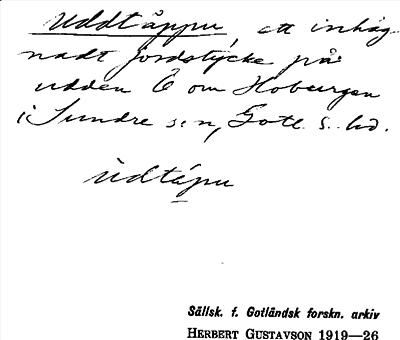 Uddtäppu, ett inhäg-
nadt jordstycke på
udden Ö om Hoburgen
i Sundre s:n, Gotl. S. hd.
ùdtépu
Sällsk. f. Gotländsk forskn. arkiv
HERBERT GUSTAVSON 1919—26